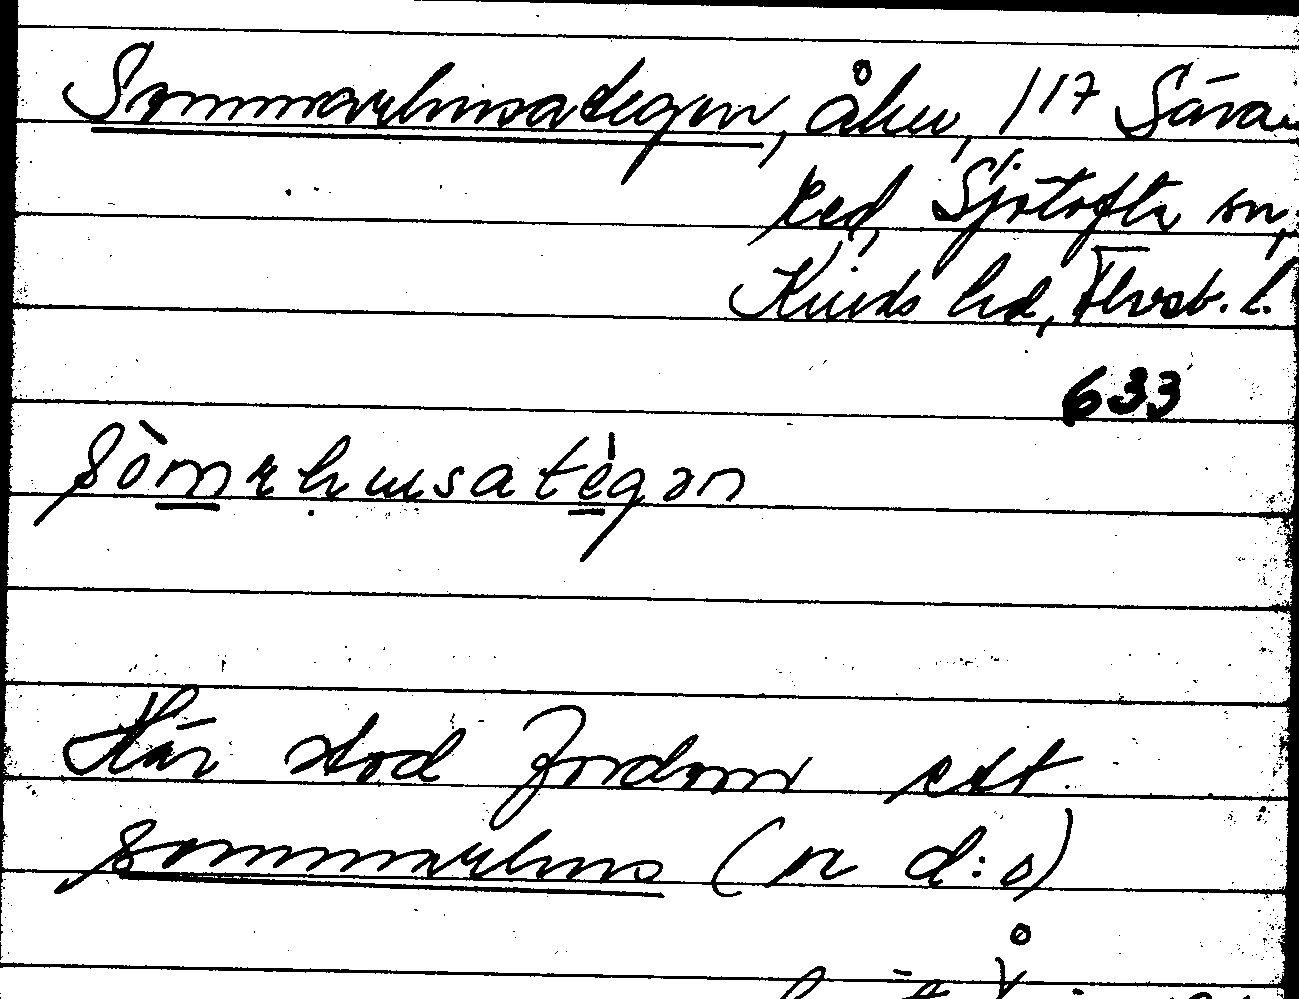 Sommarhusategen, åker, 1/17 Sära
ked, Sjötofta sn,
Kinds hd, Älvsb. l.
633
sòmarhusatégan
Här stod fordom ett
sommarhus (se d:o)